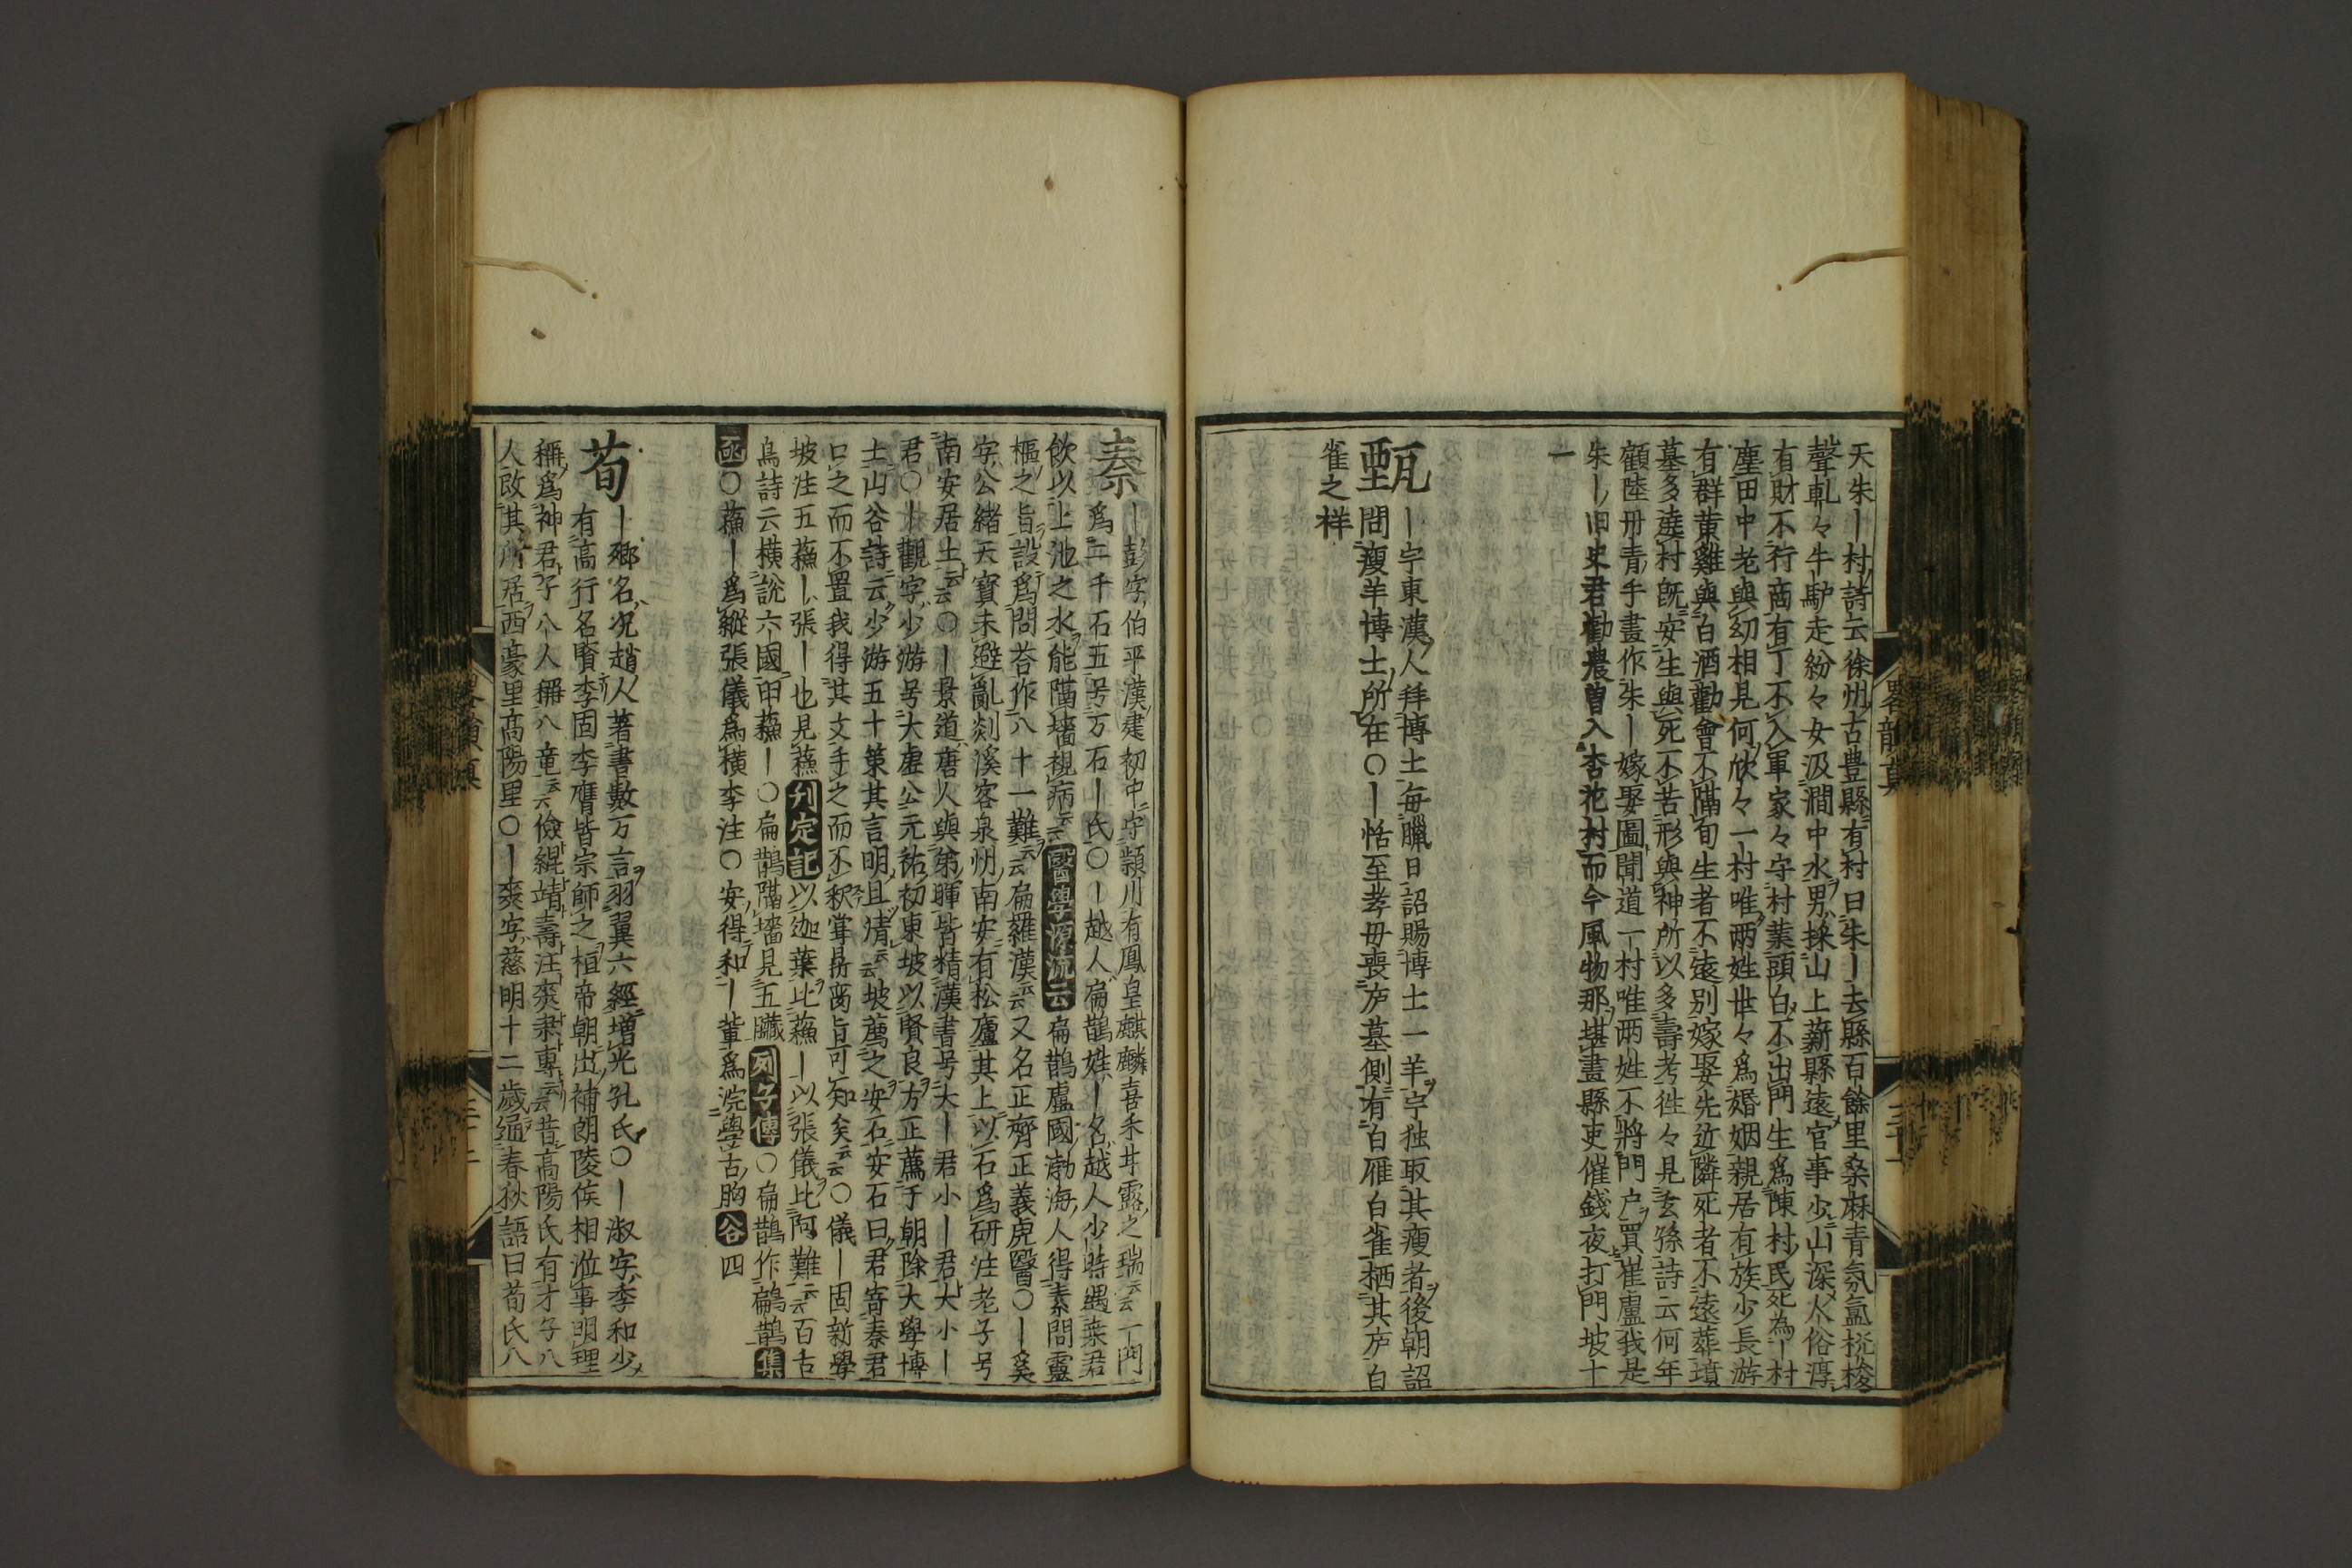 天朱ー村詩云徐州古豊縣有村曰朱ー去縣百餘里桑麻青氛氳梭
聲軋々牛馿走紛々女汲澗中水男採山上薪縣遠官事少山深人俗淳
有財不行商有丁不入軍家々守村業頭白不出門生爲陳村民死為ー村
塵田中老與幻相見何欣々一村唯兩姓世々爲婚姻親居有族少長游
有群黄雞與白酒勸會不隔旬生者不遠別嫁娶先近隣死者不遠葬墳
墓多遶村既安生與死不苦形與神所以多壽考徃々見玄孫詩云何年
顧陸丹青手畫作朱ー嫁娶圖聞道一村唯兩姓不將門户買崔盧我是
朱ー旧史君勸農曽入杏花村而今風物那堪畫縣吏催錢夜打門坡十
一
甄ー宇東漢人拜博士毎臘日詔賜博士一羊宇独取其瘦者後朝詔
問瘦羊博士所在〇ー恬至孝母喪庐墓側有白雁白雀栖其庐白
雀之祥
畧韻
秦ー彭字伯平漢建初中守頴川有鳳皇麒麟喜禾甘露之瑞云云一門
爲二千石五号万石ー氏〇ー越人扁鵲姓ー名越人少時遇桒君
飲以上池之水能隔墻視病云云醫學源流云扁鵲盧國渤海人得素問靈
樞之旨設爲問荅作八十一難云云扁羅漢云云又名正齊正義虎醫〇ー系
字公緒天寳末避亂剡溪客泉州南安有松廬其上以石爲研注老子号
南安居士云云〇ー景道唐人與弟暉皆精漢書号大ー君小ー君大小ー
君〇ー觀字少游号大虚公元祐初東坡以賢良方正薦于朝除大學博
士山谷詩云少游五十策其言明且清云云坡薦之安石安石曰君寄秦君
口之而不置我得其文手之而不釈其
坡注五蘓ー張ー也見蘓刋定記以迦葉比蘓ー以張儀比阿難云云百古
鳥詩云横說六國印蘓ー〇扁鵲隔墻見五臟列子傳〇扁鵲作鶣鵲集
〇蘓ー爲縱張儀爲横李注〇安得和ー軰爲浣學古胸谷四
荀ー郷名况趙人著書數万言羽翼六經增光孔氏〇ー淑字季和少
有高行名賢李固李膺皆宗師之桓帝朝出補朗陵侯相涖事明理
稱爲神君子八人稱八竜云云儉緄靖壽汪爽肅專云云昔高陽氏有才子八
人改其所居西豪里高陽里〇ー爽字慈明十二歳通春秋語曰荀氏八